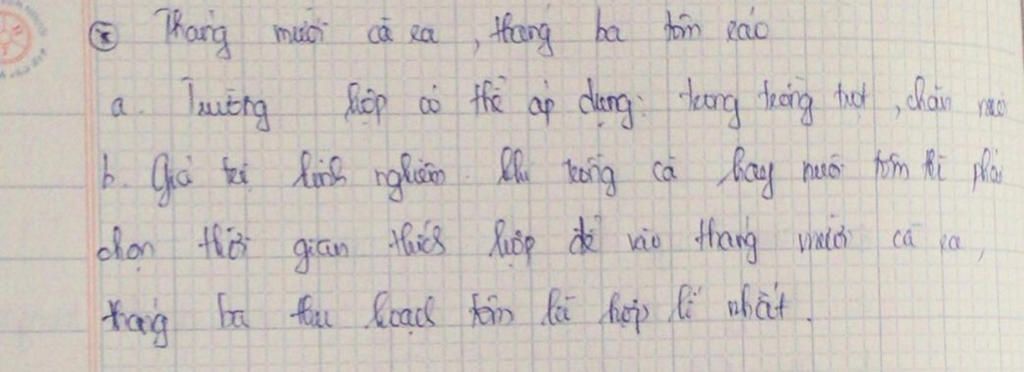 Tháng mười cà ra, tháng ba tôm ráo
a. Trường hợp có thể áp dụng: trong trồng trọt, chăn nuôi
b. Giá trị kinh nghiệm. Khi trồng cà hay nuôi tôm thì phải
chọn thời gian thích hợp để vào tháng mười cà ra,
tháng ba thu hoạch tôm là hợp lí nhất.